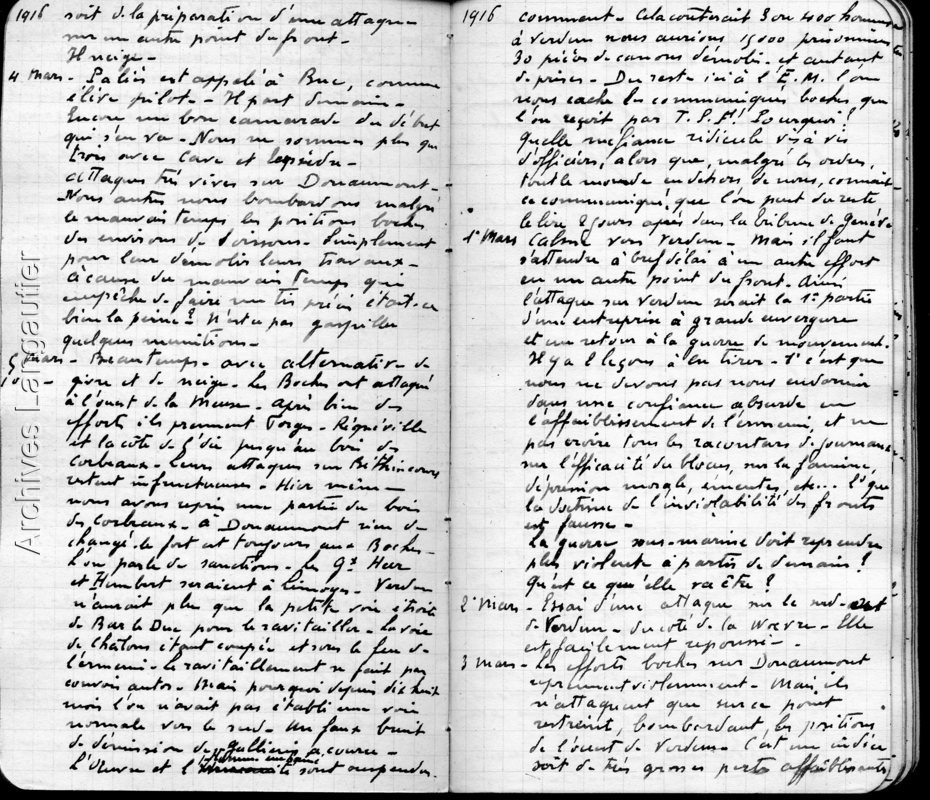 1916
soit de la préparation d'une attaque
sur un autre point du front -
Il neige -
4 Mars - est appelé à Buc, comme
élève pilote - Il part demain -
Encore un bon camarade du début
qui s'en va - Nous ne sommes plus que
trois avec Cave et
Attaques très vives sur Douaumont -
Nous autres nous bombardons malgré
le mauvais temps les positions boches
des environs de Soissons - Simplement
pour leur démolir leurs travaux -
à cause du mauvais temps qui
empêche de faire un tir précis était-ce
bien la peine ? N'est ce pas gaspiller
quelques munitions -
5 Mars - Beau temps - avec alternative de
10 - givre et de neige - Les Boches ont attaqué
à l'ouest de la Meuse - Après bien des
efforts ils prennent Forges - Régnéville
et la côte de l'oie jusqu'au bois des
Corbeaux - Leurs attaques sur Béthincourt
restent infructueuses - Hier même
nous avons repris une partie du bois
des Corbeaux - à Douaumont rien de
changé - le fort est toujours aux Boches -
L'on parle de sanctions - Les Gx Herr
et Humbert seraient à Limoges - Verdun
n'aurait plus que la petite voie étroite
de Bar le Duc pour le ravitailler - La voie
de Chalons étant coupée et sous le feu de
l'ennemi - Le ravitaillement se fait par
convois autos - Mais pourquoi depuis dix huit
mois l'on n'avait pas établi une voie
normale vers le sud - Un faux bruit
de démission de Gallieni a couru -
L'Oeuvre et l'homme enchaîné sont suspendus -
1916
comment - Cela couterait 3 ou 400 hommes
à Verdun nous aurions 15000 prisonniers
30 pièces de canons démolis - et autant
de prises - Du reste ici à l'E.M. l'on
nous cache les communiqués boches, que
l'on reçoit par T.S.F. ! Pourquoi ?
Quelle méfiance ridicule vis à vis
d'officiers, alors que, malgré les ordres,
tout le monde en dehors de nous, connait
ce communiqué, que l'on peut du reste
le lire 2 jours après dans la tribune de Genève
1er Mars Calme vers Verdun - Mais il faut
s'attendre à bref délai à un autre effort
en un autre point du front - Ainsi
l'attaque sur Verdun serait la 1e partie
d'une entreprise à grande envergure
et un retour à la guerre de mouvement -
Il y a 2 leçons à en tirer - 1° c'est que
nous ne devons pas nous endormir
dans une confiance absurde en
l'affaiblissement de l'ennemi, et ne
pas croire tous les racontars de journaux
sur l'efficacité du blocus, sur la famine,
dépression morale, émeutes, etc... 2° que
la doctrine de l'inviolabilité des fronts
est fausse -
La guerre sous-marine doit reprendre
plus violente à partir de demain !
Qu'est ce que elle va être ?
2 Mars - Essai d'une attaque sur le sud-est
de Verdun - du côté de la Woëvre - Elle
est facilement repoussée -
3 Mars - Les efforts boches sur Douaumont
reprennent violemment - Mais ils
n'attaquent que sur ce point
restreint, bombardant les positions
de l'ouest de Verdun - C'est un indice
soit de très grosses pertes affaiblissantes
Archives Langautier